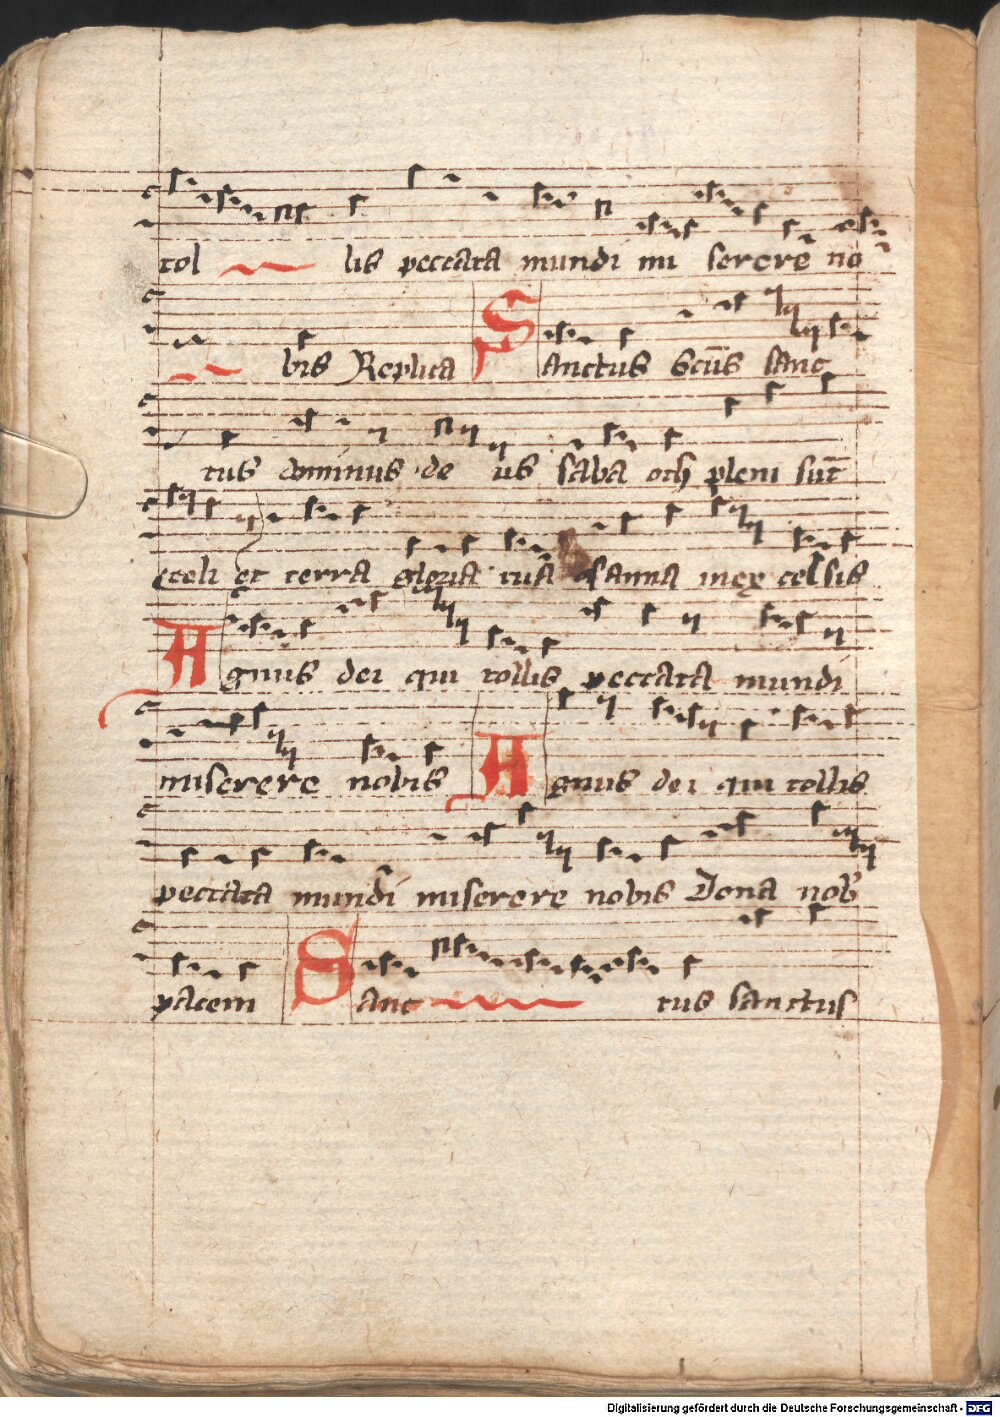 tol lis peccata mundi mi serere no
bis Replica Sanctus Scūs sanc
tus dominus de us saba oth pleni sūt
celi et terra gloria tuā osanna in excelsis
Agnus dei qui tollis peccata mundi
miserere nobis Agnus dei qui tollis
peccata mundi miserere nobis Dona nob
pacem Sanc tus sanctus
Digitalisierung gefördert durch die Deutsche Forschungsgemeinschaft - DFG